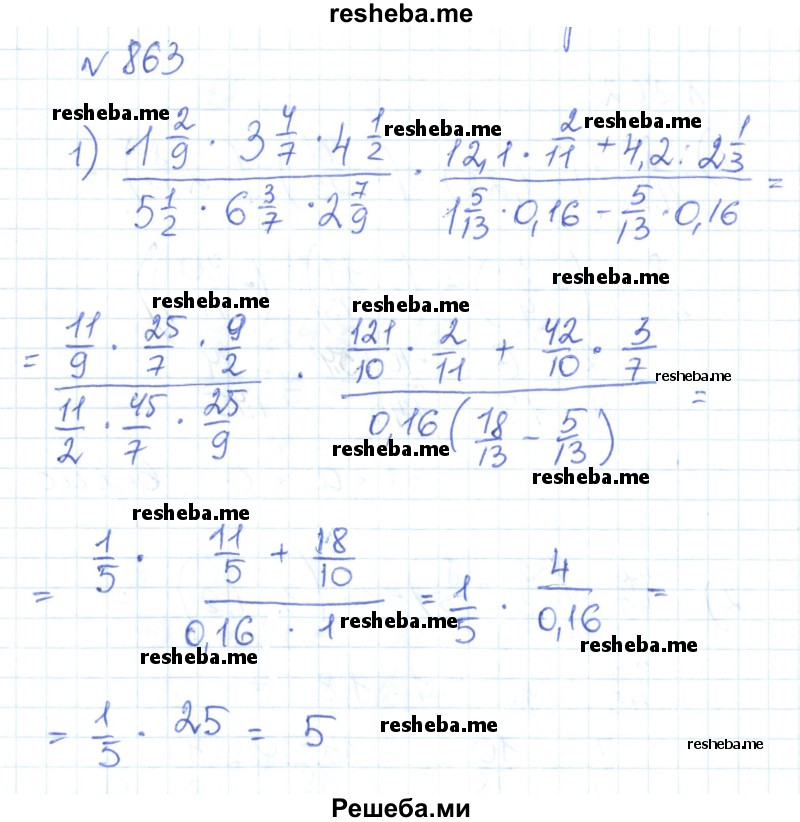 resheba.me
№ 863
resheba.me
1) (1 2/9 · 3 4/7 · 4 1/2) / (5 1/2 · 6 3/7 · 2 7/9) · (12,1 · 2/11 + 4,2 : 2 1/3) / (1 5/13 · 0,16 – 5/13 · 0,16) =
resheba.me resheba.me
resheba.me
resheba.me resheba.me
= (11/9 · 25/7 · 9/2) / (11/2 · 45/7 · 25/9) · (121/10 · 2/11 + 42/10 · 3/7) / (0,16 (18/13 – 5/13)) =
resheba.me
resheba.me
resheba.me
resheba.me
= 1/5 · (11/5 + 18/10) / (0,16 · 1) = 1/5 · 4 / 0,16 =
resheba.me
resheba.me resheba.me
= 1/5 · 25 = 5 resheba.me
resheba.me
Решеба.ми